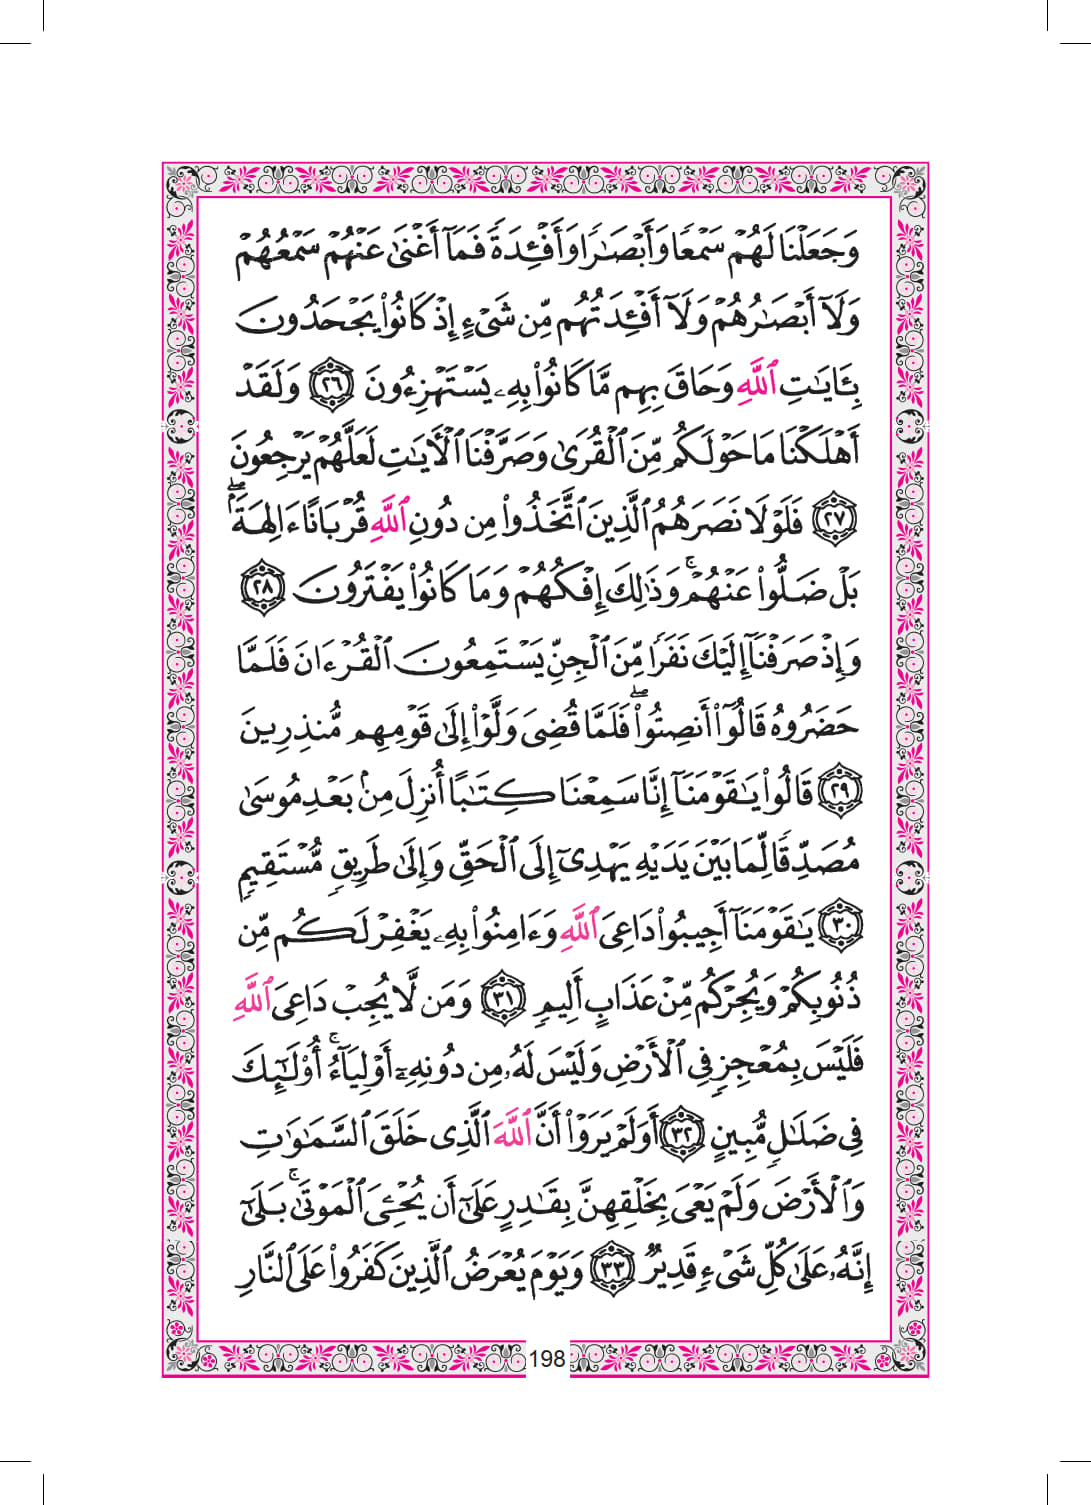 وَجَعَلْنَا لَهُمْ سَمْعًا وَأَبْصَٰرًا وَأَفْـِٔدَةً فَمَآ أَغْنَىٰ عَنْهُمْ سَمْعُهُمْ
وَلَآ أَبْصَٰرُهُمْ وَلَآ أَفْـِٔدَتُهُم مِّن شَىْءٍ إِذْ كَانُوا۟ يَجْحَدُونَ
بِـَٔايَٰتِ ٱللَّهِ وَحَاقَ بِهِم مَّا كَانُوا۟ بِهِۦ يَسْتَهْزِءُونَ ٢٦ وَلَقَدْ
أَهْلَكْنَا مَا حَوْلَكُم مِّنَ ٱلْقُرَىٰ وَصَرَّفْنَا ٱلْـَٔايَٰتِ لَعَلَّهُمْ يَرْجِعُونَ
٢٧ فَلَوْلَا نَصَرَهُمُ ٱلَّذِينَ ٱتَّخَذُوا۟ مِن دُونِ ٱللَّهِ قُرْبَانًا ءَالِهَةًۢ ۖ
بَلْ ضَلُّوا۟ عَنْهُمْ ۚ وَذَٰلِكَ إِفْكُهُمْ وَمَا كَانُوا۟ يَفْتَرُونَ ٢٨
وَإِذْ صَرَفْنَآ إِلَيْكَ نَفَرًا مِّنَ ٱلْجِنِّ يَسْتَمِعُونَ ٱلْقُرْءَانَ فَلَمَّا
حَضَرُوهُ قَالُوٓا۟ أَنصِتُوا۟ ۖ فَلَمَّا قُضِىَ وَلَّوْا۟ إِلَىٰ قَوْمِهِم مُّنذِرِينَ
٢٩ قَالُوا۟ يَٰقَوْمَنَآ إِنَّا سَمِعْنَا كِتَٰبًا أُنزِلَ مِنۢ بَعْدِ مُوسَىٰ
مُصَدِّقًا لِّمَا بَيْنَ يَدَيْهِ يَهْدِىٓ إِلَى ٱلْحَقِّ وَإِلَىٰ طَرِيقٍ مُّسْتَقِيمٍ
٣٠ يَٰقَوْمَنَآ أَجِيبُوا۟ دَاعِىَ ٱللَّهِ وَءَامِنُوا۟ بِهِۦ يَغْفِرْ لَكُم مِّن
ذُنُوبِكُمْ وَيُجِرْكُم مِّنْ عَذَابٍ أَلِيمٍ ٣١ وَمَن لَّا يُجِبْ دَاعِىَ ٱللَّهِ
فَلَيْسَ بِمُعْجِزٍ فِى ٱلْأَرْضِ وَلَيْسَ لَهُۥ مِن دُونِهِۦٓ أَوْلِيَآءُ ۚ أُو۟لَٰٓئِكَ
فِى ضَلَٰلٍ مُّبِينٍ ٣٢ أَوَلَمْ يَرَوْا۟ أَنَّ ٱللَّهَ ٱلَّذِى خَلَقَ ٱلسَّمَٰوَٰتِ
وَٱلْأَرْضَ وَلَمْ يَعْىَ بِخَلْقِهِنَّ بِقَٰدِرٍ عَلَىٰٓ أَن يُحْـِۧىَ ٱلْمَوْتَىٰ ۚ بَلَىٰٓ
إِنَّهُۥ عَلَىٰ كُلِّ شَىْءٍ قَدِيرٌ ٣٣ وَيَوْمَ يُعْرَضُ ٱلَّذِينَ كَفَرُوا۟ عَلَى ٱلنَّارِ
198